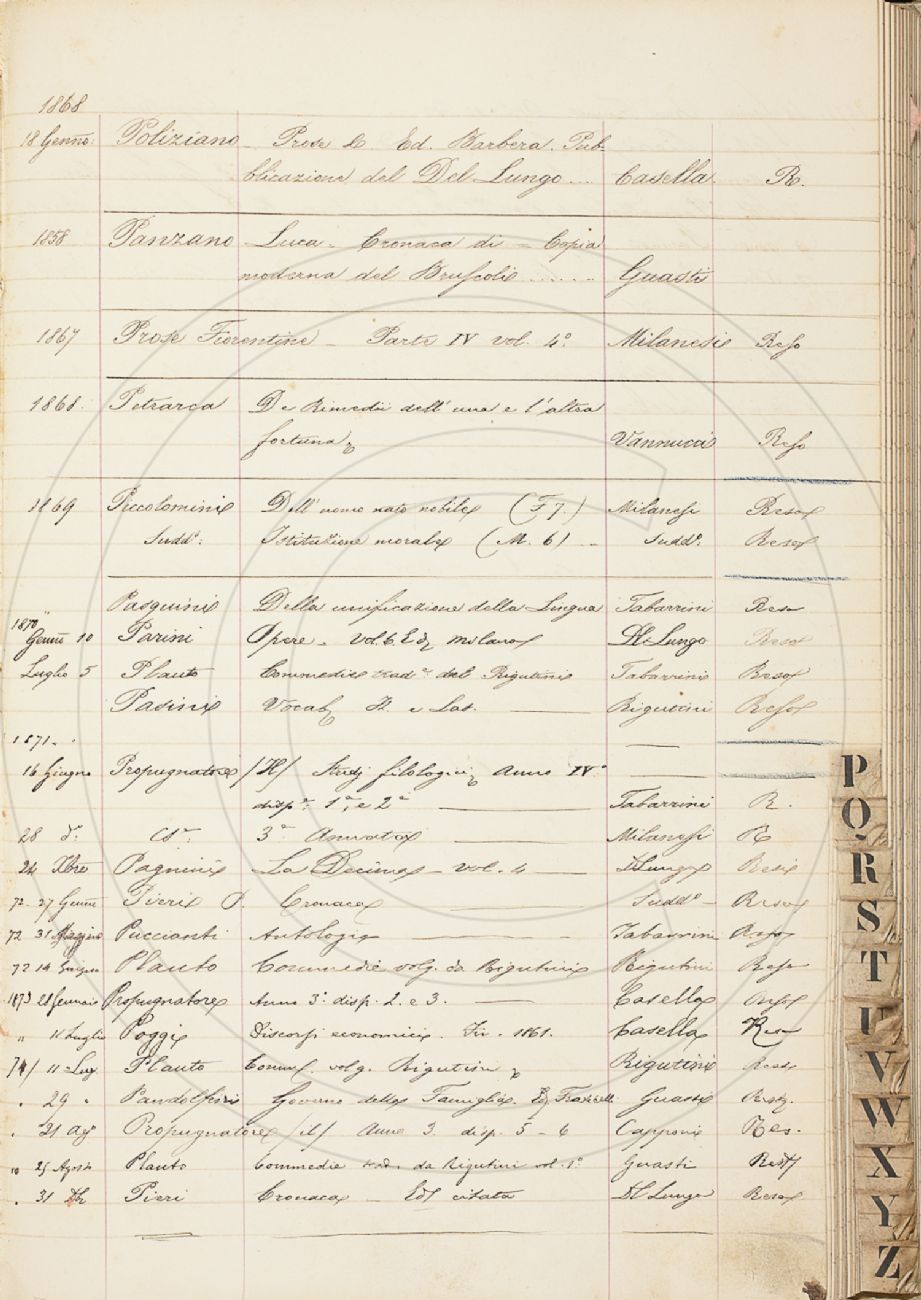 1868
18 Genno: Poliziano - Prose &c Ed. Barbera. Pub-
blicazione del Del-Lungo ... Casella. R.
1858 Panzano Luca - Cronaca di - Copia
moderna del Bruscoli ...... Guasti
1867 Prose Fiorentine - Parte IV vol. 4º. Milanesi Reso
1868. Petrarca De Rimedii dell' una e l'altra
fortuna Vannucci Reso
1869 Piccolomini Dell' uomo nato nobile (F 7.) Milanesi Reso
Suddº: Istituzione morale (M. 6) .. Suddº. Reso
" Pasquini Della unificazione della Lingua Tabarrini Reso
1870
Genn 10 Parini Opere - vol. 6. Ed. Milano Del-Lungo Reso
Luglio 5 Plauto Commedie trad. del Rigutini Tabarrini Reso
Pasini Vocab. It. e Lat. Rigutini Reso
1871.
16 Giugno Propugnatore /Il/ Studj filologici Anno IVº
disp. 1ª, e 2ª Tabarrini R.
28 dº. Cs. 3ª Annata Milanesi R
24 Xbre Pagnini La Decima - vol. 4 DLungo Reso
72. 27 Genn Pieri P. Cronaca Suddº Reso
72 31 Maggio Puccianti Antologia Tabarrini Reso
72 14 Giugno Plauto Commedie volg. da Rigutini Rigutini Reso
1873 28 Gennaio Propugnatore Anno 3º. disp. 2. e 3. Casella Reso
" 14 Luglio Poggi Discorsi economici. Fir. 1861. Casella Reso
74/ 11 Lug Plauto Comm. volg. Rigutini Rigutini Reso
. 29 " Pandolfini Governo della Famiglia. Guasti
. 21 ag Propugnatore /il/ Anno 3. disp. 5 - 6 Capponi Res.
" 25 Agosto Plauto Commedie trad. da Rigutini vol. 1º Guasti
. 31 Pieri Cronaca - Ed. citata Del Lungo Reso
P
Q
R
S
T
U
V
W
X
Y
Z